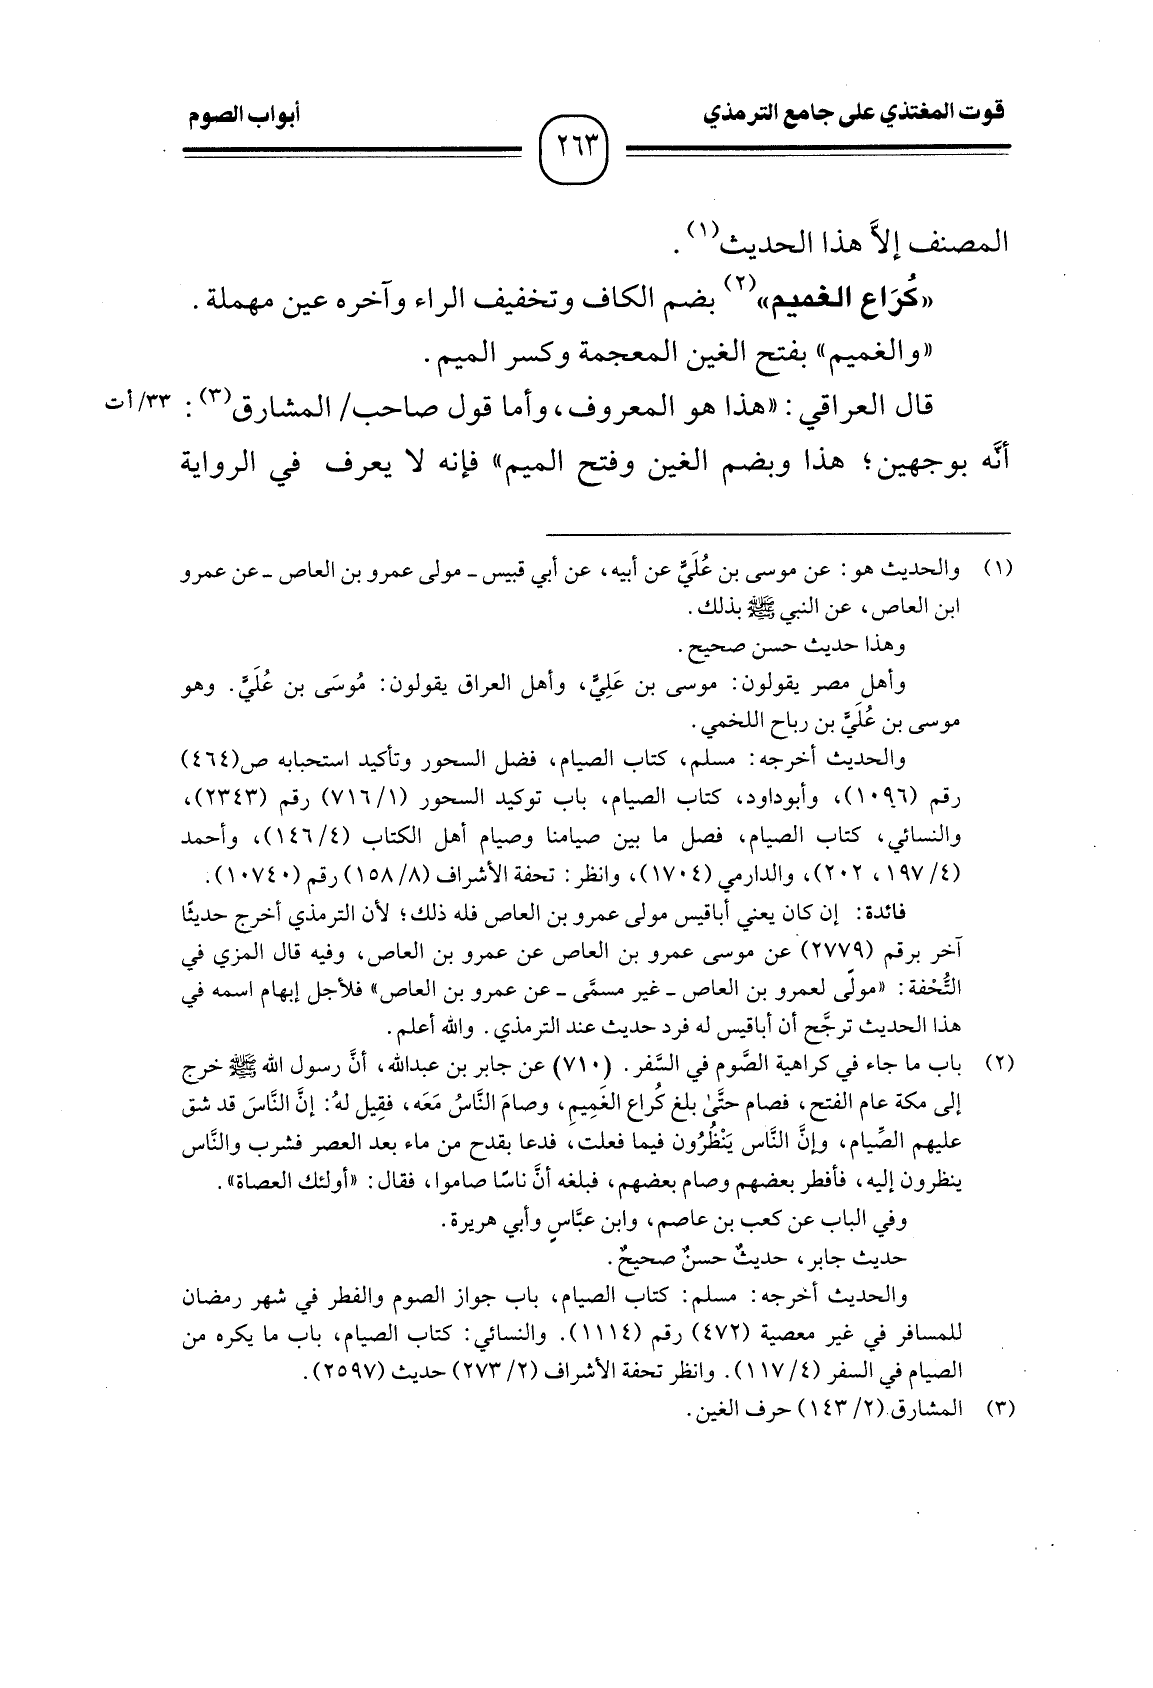 قوت المغتذي على جامع الترمذي
٢٦٣
أبواب الصوم
المصنف إلاَّ هذا الحديث(١).
«كُرَاع الغميم»(٢) بضم الكاف وتخفيف الراء وآخره عين مهملة.
«والغميم» بفتح الغين المعجمة وكسر الميم.
قال العراقي: «هذا هو المعروف، وأما قول صاحب/ المشارق(٣): ٣٣/أت
أنَّه بوجهين؛ هذا وبضم الغين وفتح الميم» فإنه لا يعرف في الرواية
(١) والحديث هو: عن موسى بن عُلَيٍّ عن أبيه، عن أبي قبيس - مولى عمرو بن العاص - عن عمرو
ابن العاص، عن النبي ﷺ بذلك.
وهذا حديث حسن صحيح.
وأهل مصر يقولون: موسى بن عَلِيٍّ، وأهل العراق يقولون: مُوسَى بن عُلَيٍّ. وهو
موسى بن عُلَيٍّ بن رباح اللخمي.
والحديث أخرجه: مسلم، كتاب الصيام، فضل السحور وتأكيد استحبابه ص(٤٦٤)
رقم (١٠٩٦)، وأبوداود، كتاب الصيام، باب توكيد السحور (٧١٦/١) رقم (٢٣٤٣)،
والنسائي، كتاب الصيام، فصل ما بين صيامنا وصيام أهل الكتاب (١٤٦/٤)، وأحمد
(١٩٧/٤، ٢٠٢)، والدارمي (١٧٠٤)، وانظر: تحفة الأشراف (١٥٨/٨) رقم (١٠٧٤٠).
فائدة: إن كان يعني أباقيس مولى عمرو بن العاص فله ذلك؛ لأن الترمذي أخرج حديثًا
آخر برقم (٢٧٧٩) عن موسى عمرو بن العاص عن عمرو بن العاص، وفيه قال المزي في
التُّحْفة: «مولًى لعمرو بن العاص - غير مسمَّى - عن عمرو بن العاص» فلأجل إبهام اسمه في
هذا الحديث ترجَّح أن أباقيس له فرد حديث عند الترمذي. والله أعلم.
(٢) باب ما جاء في كراهية الصَّوم في السَّفر. (٧١٠) عن جابر بن عبدالله، أنَّ رسول الله ﷺ خرج
إلى مكة عام الفتح، فصام حتَّىٰ بلغ كُراع الغَمِيمِ، وصامَ النَّاسُ مَعَه، فقِيل لهُ: إنَّ النَّاسَ قد شق
عليهم الصِّيام، وإنَّ النَّاس يَنْظُرُون فيما فعلت، فدعا بقدح من ماء بعد العصر فشرب والنَّاس
ينظرون إليه، فأفطر بعضهم وصام بعضهم، فبلغه أنَّ ناسًا صاموا، فقال: «أولئك العصاة».
وفي الباب عن كعب بن عاصم، وابن عبَّاسٍ وأبي هريرة.
حديث جابر، حديثٌ حسنٌ صحيحٌ.
والحديث أخرجه: مسلم: كتاب الصيام، باب جواز الصوم والفطر في شهر رمضان
للمسافر في غير معصية (٤٧٢) رقم (١١١٤). والنسائي: كتاب الصيام، باب ما يكره من
الصيام في السفر (١١٧/٤). وانظر تحفة الأشراف (٢٧٣/٢) حديث (٢٥٩٧).
(٣) المشارق (١٤٣/٢) حرف الغين.